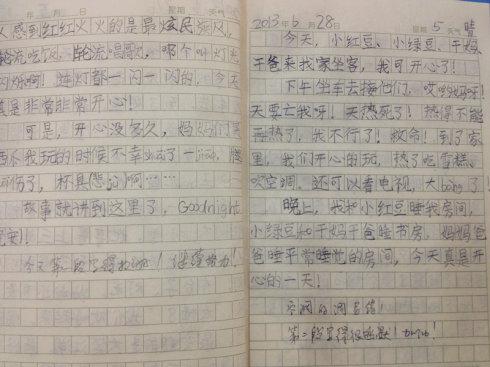 年 月 日 星期 天气
感到红红火火的是最炫民族风,
轮流吃饭,轮流唱歌,那个叫灯光
闪烁啊!连灯都一闪一闪的,今天
真是非常非常开心!
可是,开心没多久,妈妈们
我玩的时候不幸 了一 ,
伤了,杯具 啊……
故事就讲到这里了,Goodnight
晚安!
今天第一段写得 !继续努力!
2013年6月28日 星期5 天气晴
今天,小红豆、小绿豆、干妈、
干爸来我家坐客,我可开心了!
下午坐车去接他们,哎哟我妈呀!
天要亡我呀!天热死了!热得不能
再热了,我不行了!救命!到了家
里,我们开心的玩,热了吃雪糕、
吹空调,还可以看电视,大baby了!
晚上,我和小红豆睡我房间,
小绿豆和干妈干爸睡书房,妈妈爸
爸睡平常睡觉的房间,今天真是开
心的一天!
空调的调写错!
第二段写得很幽默!加油!